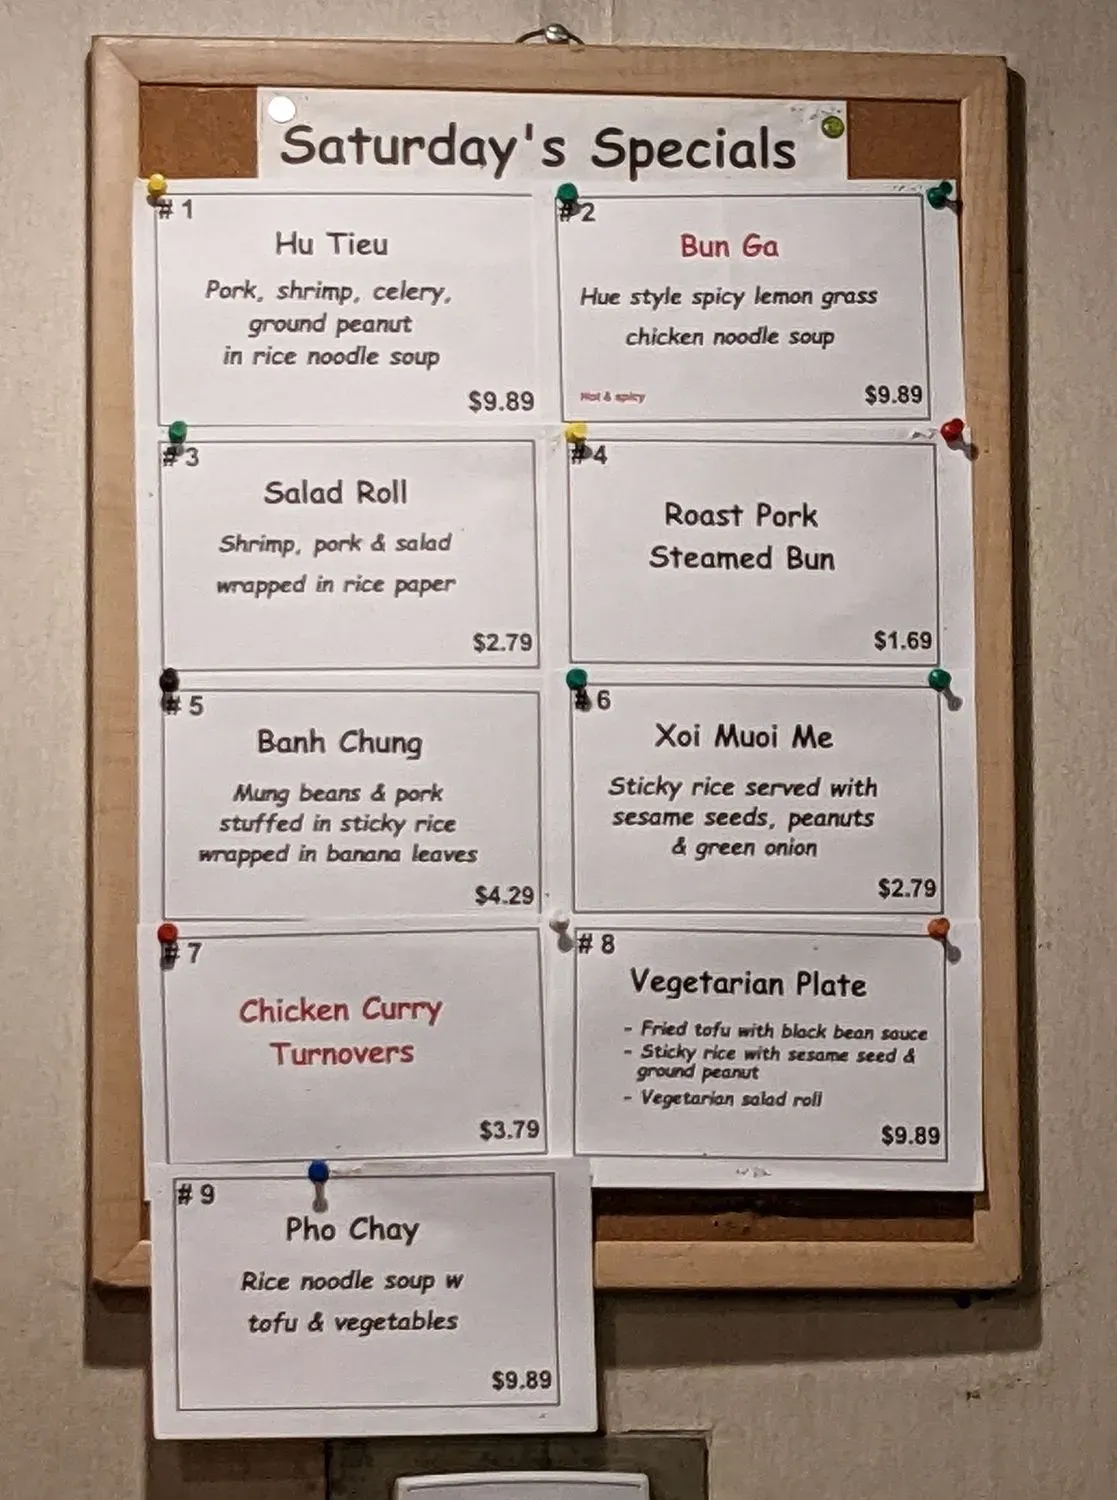 Saturday's Specials
# 1
Hu Tieu
Pork, shrimp, celery,
ground peanut
in rice noodle soup
$9.89
# 2
Bun Ga
Hue style spicy lemon grass
chicken noodle soup
Hot & spicy
$9.89
# 3
Salad Roll
Shrimp, pork & salad
wrapped in rice paper
$2.79
# 4
Roast Pork
Steamed Bun
$1.69
# 5
Banh Chung
Mung beans & pork
stuffed in sticky rice
wrapped in banana leaves
$4.29
# 6
Xoi Muoi Me
Sticky rice served with
sesame seeds, peanuts
& green onion
$2.79
# 7
Chicken Curry
Turnovers
$3.79
# 8
Vegetarian Plate
- Fried tofu with black bean sauce
- Sticky rice with sesame seed &
ground peanut
- Vegetarian salad roll
$9.89
# 9
Pho Chay
Rice noodle soup w
tofu & vegetables
$9.89